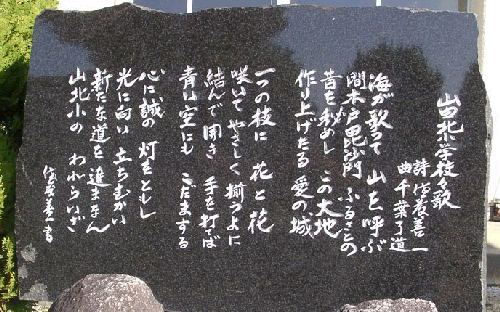 山田北小学校々歌
詩 佐々木善一
曲 千葉了道
海が歌て 山を呼ぶ
間木戸毘沙門 ふるさとの
昔を秘めし この大地
作り上げたる 愛の城
一つの枝に 花と花
咲いて やさしく 揃うように
結んで 開き 手を打てば
青い空にも こだまする
心に誠の 灯をともし
光に向い 立ちむかい
新たな道を 進まなん
山北小の われらいざ